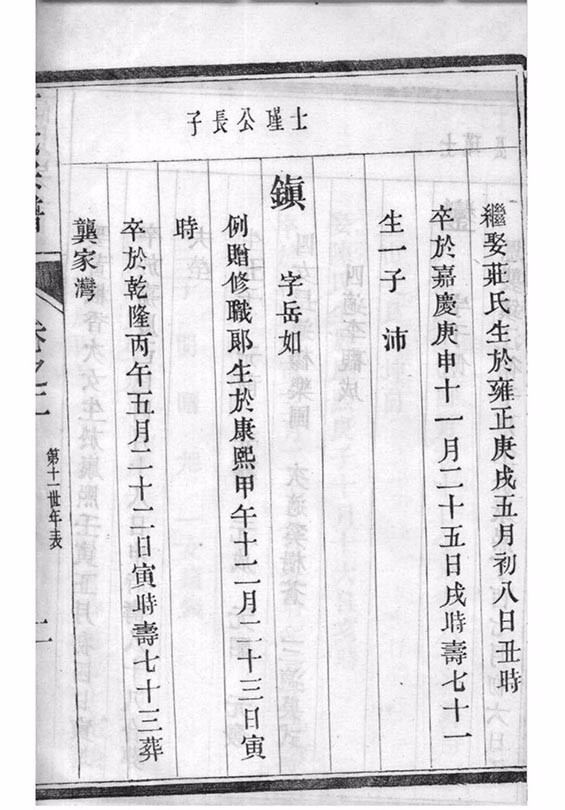 士瑾公長子
繼娶莊氏生於雍正庚戌五月初八日丑時
卒於嘉慶庚申十一月二十五日戌時壽七十一
生一子沛
鎮 字岳如
例贈修職郎生於康熙甲午十二月二十三日寅
時
卒於乾隆丙午五月二十二日寅時壽七十三葬
龔家灣
第十一世年表